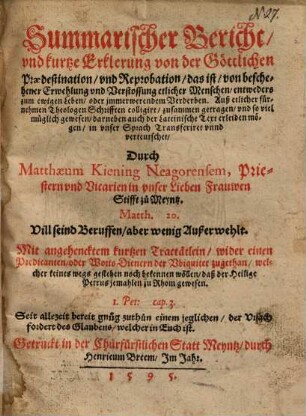 N 27.
Summarischer Bericht/
vnd kurtze Erklerung von der Göttlichen
Prædestination/ vnd Reprobation/ das ist/ von besche-
hener Erwehlung vnd Verstossung etlicher Menschen/ entweders
zum ewigen Leben/ oder jmmerwerendem Verderben. Auß etlicher für-
nehmen Theologen Schrifften colligirt/ zusammen getragen/ vnd so viel
müglich gewesen/ darneben auch der Lateinische Text erleiden mö-
gen/ in vnser Sprach Transferiret vnnd
verteutschet/
Durch
Matthæum Kiening Neagorensem, Prie-
stern vnd Vicarien in vnser Lieben Frauwen
Stifft zů Meyntz.
Matth. 20.
Vill seind Beruffen/ aber wenig Außerwehlt.
Mit angehencktem kurtzen Tractätlein/ wider einen
Predicanten/ oder Worts Dienern der Vbiquitet zugethan/ wel-
cher keines wegs gestehen noch bekennen wöllen/ daß der Heilige
Petrus jemahlen zu Rhom gewesen.
1. Pet: cap. 3.
Seit allezeit bereit gnůg zuthůn einem jeglichen/ der Vrsach
fordert des Glaubens/ welcher in Euch ist.
Getruckt in der Churfürstlichen Statt Meyntz/ durch
Henricum Breem/ Im Jahr.
1 5 9 5.